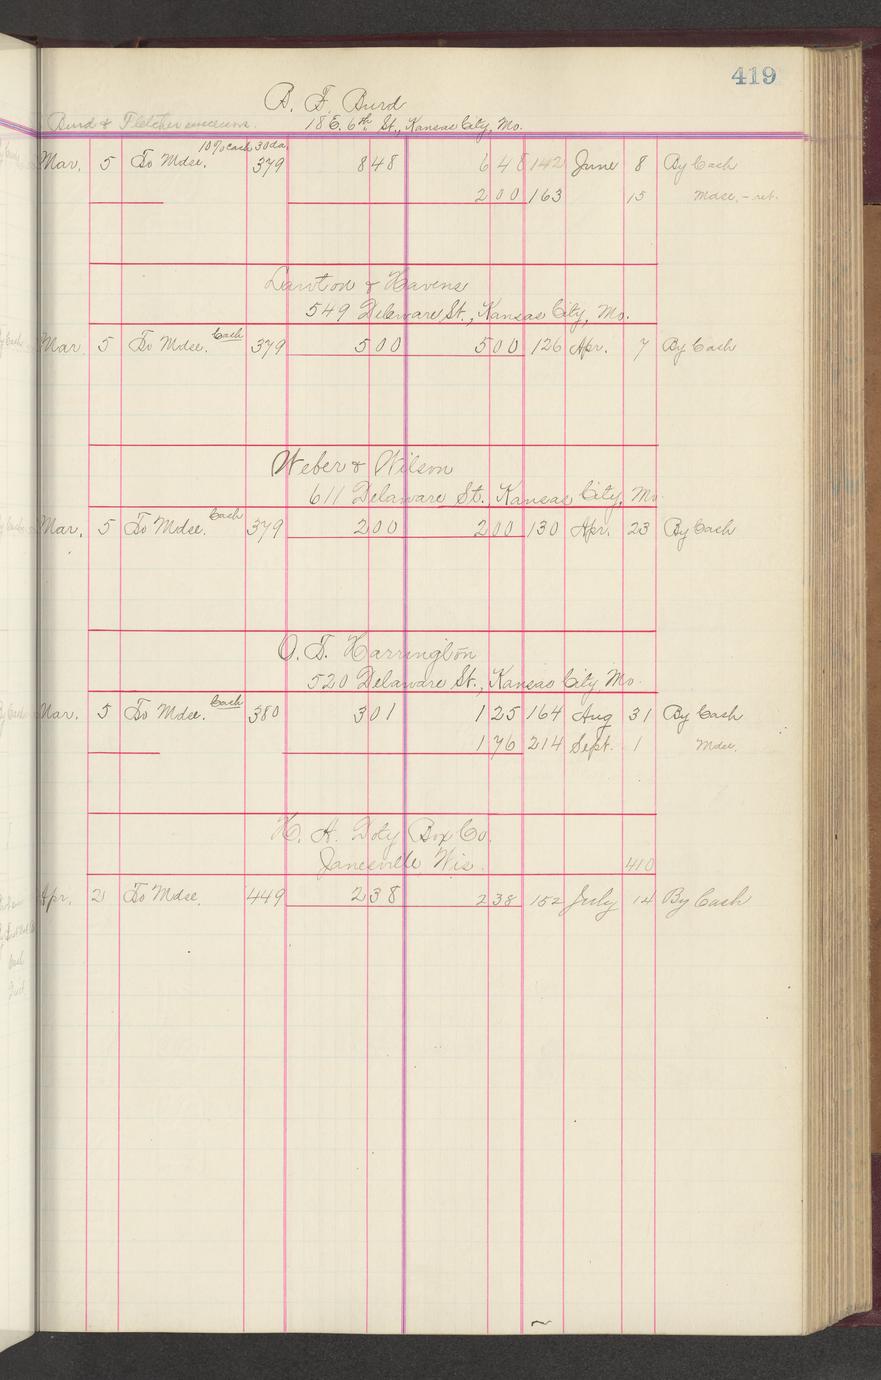 419
B. F. Burd
Burd & Fletcher 18 E. 6th St., Kansas City, Mo.
10% cash 30 da
Mar. 5 To Mdse. 379 848 648 142 June 8 By Cash
200 163 15 Mdse. - ret.
Lawton & Havens
549 Delaware St., Kansas City, Mo.
Mar 5 To Mdse. Cash 379 500 500 126 Apr. 7 By Cash
Weber & Wilson
611 Delaware St., Kansas City, Mo.
Mar. 5 To Mdse. Cash 379 200 200 130 Apr. 23 By Cash
O. T. Harrington
520 Delaware St., Kansas City Mo.
Mar. 5 To Mdse. Cash 380 301 125 164 Aug 31 By Cash
176 214 Sept. 1 Mdse.
H. A. Doty Box Co.
Janesville Wis. 410
Apr. 2 To Mdse. 449 238 238 152 July 14 By Cash